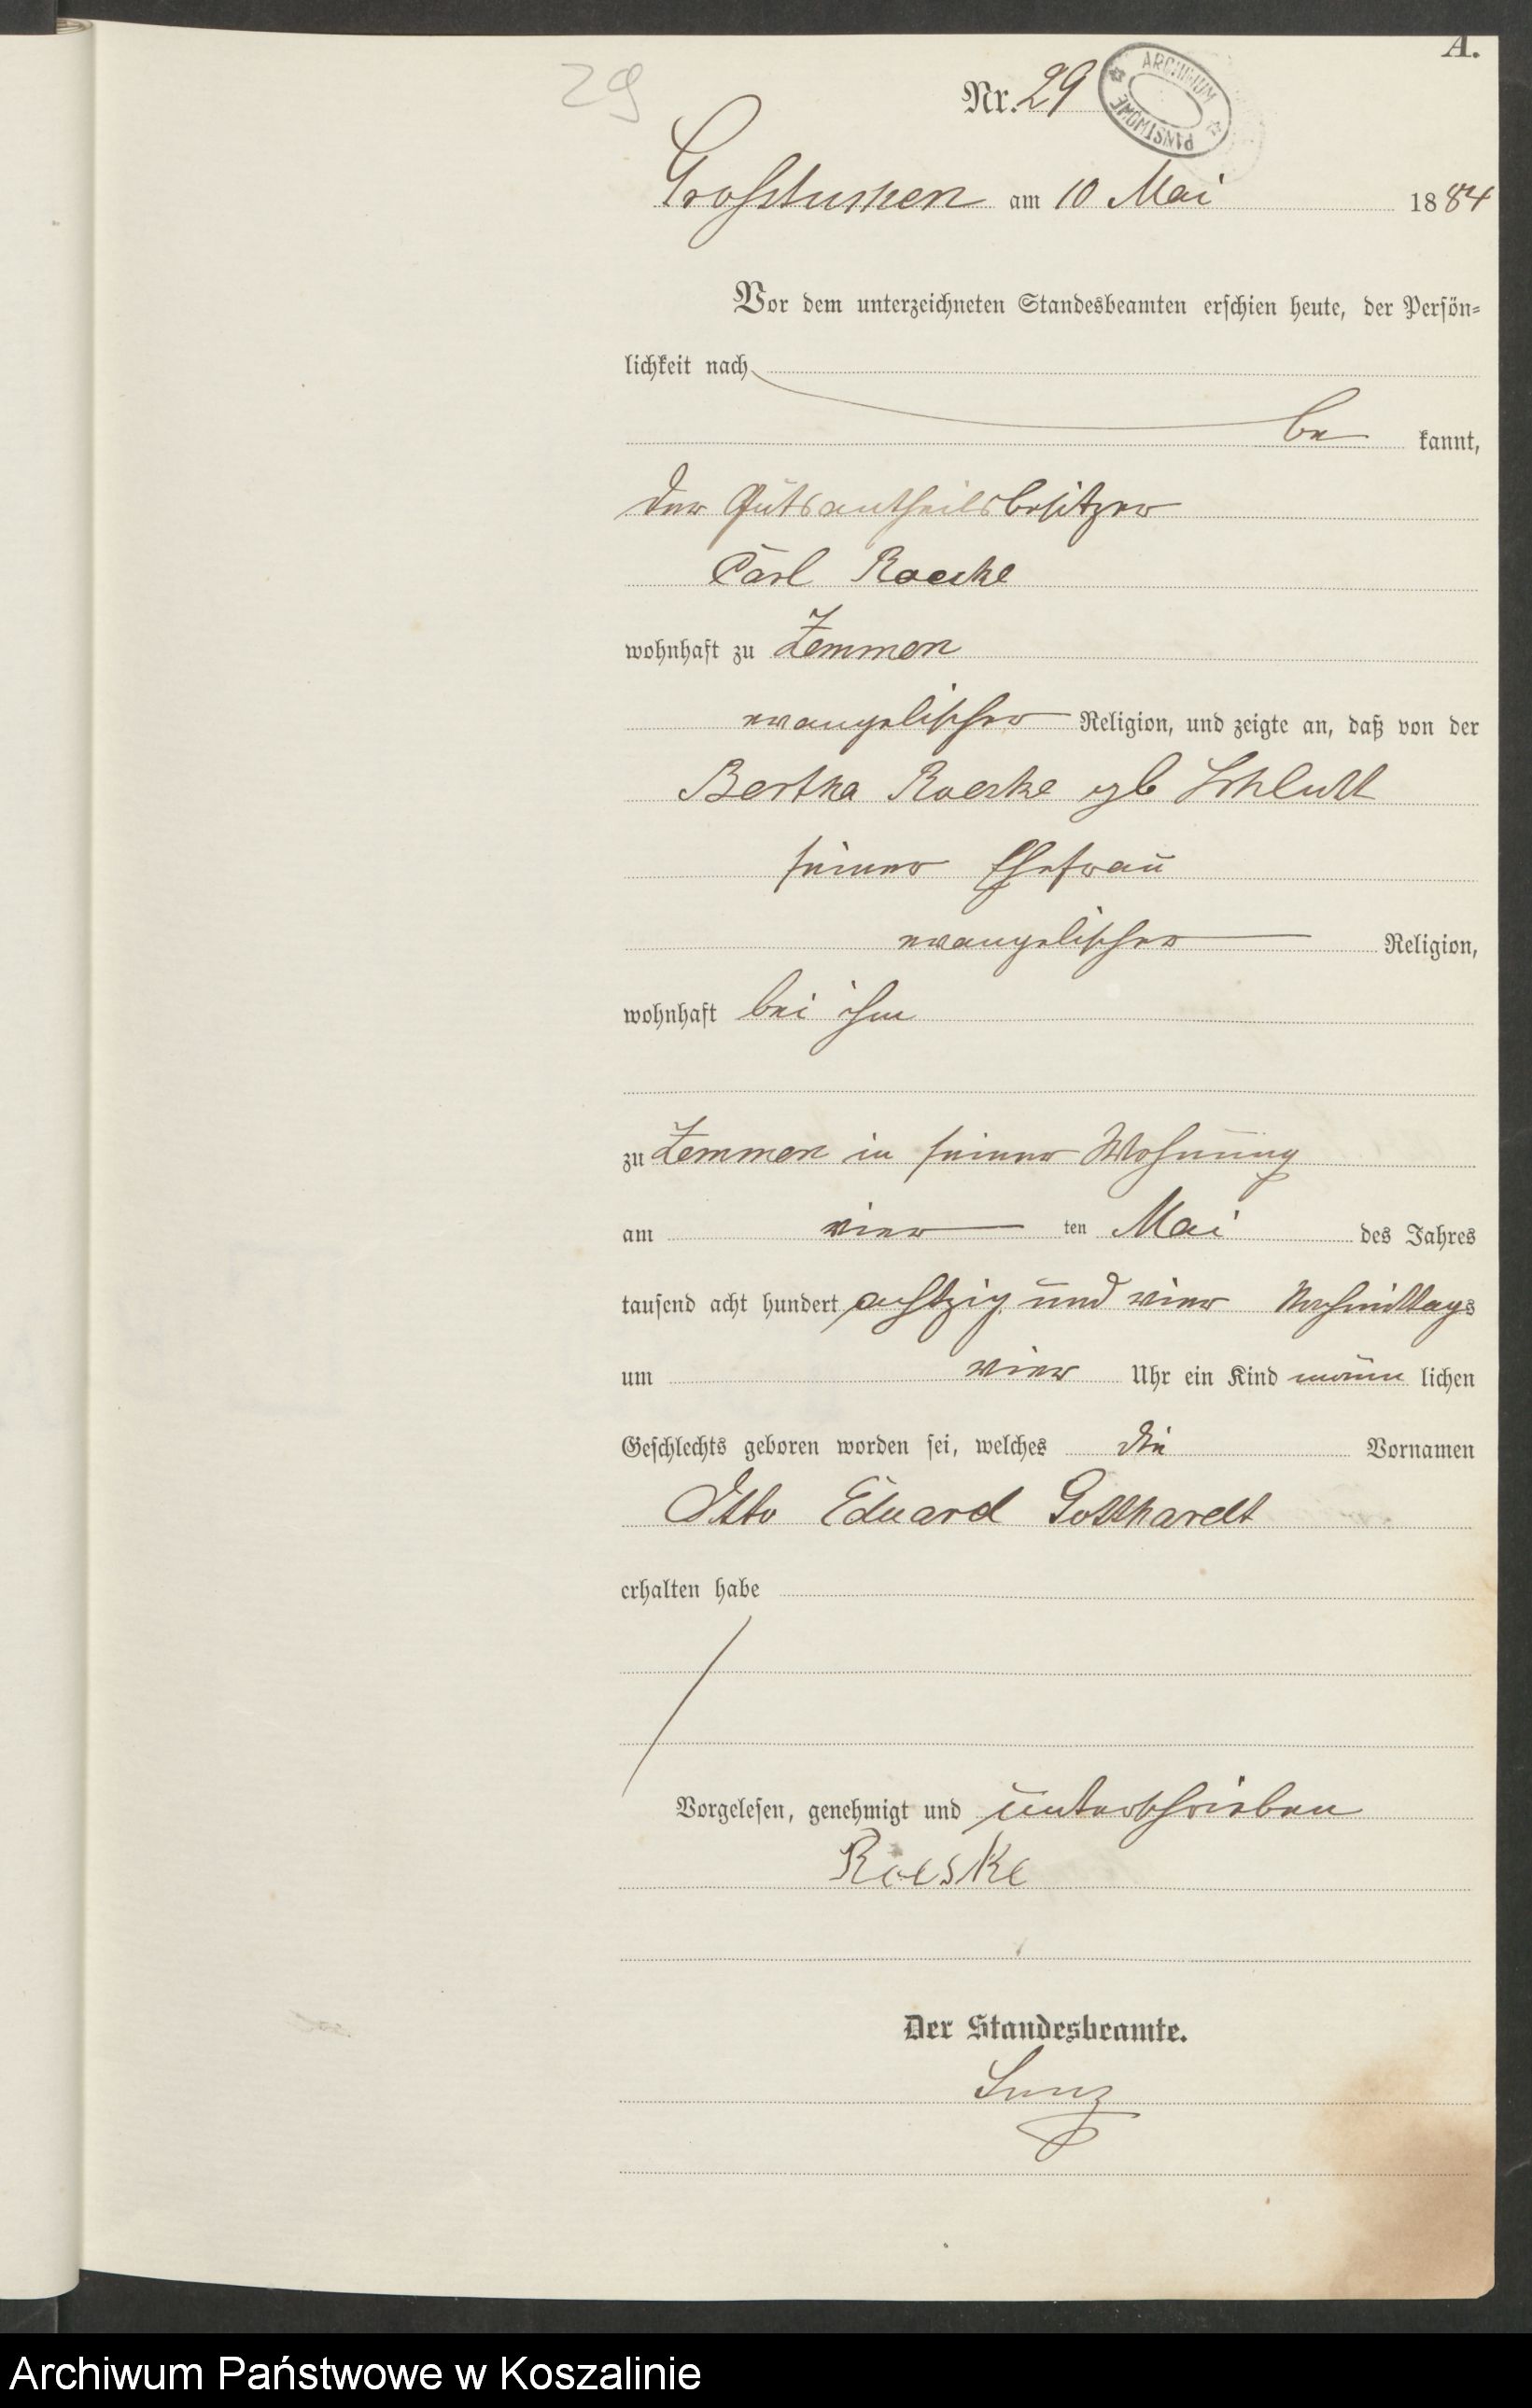 A.
29
Nr. 29
ARCHIWUM PAŃSTWOWE
Großtuchen am 10 Mai 1884
Vor dem unterzeichneten Standesbeamten erschien heute, der Persön=
lichkeit nach
be kannt,
der Gutsantheilsbesitzer
Carl Roeske
wohnhaft zu Zemmen
evangelischer Religion, und zeigte an, daß von der
Bertha Roeske gb
seiner Ehefrau
evangelischer Religion,
wohnhaft bei ihm
zu Zemmen in seiner Wohnung
am vier ten Mai des Jahres
tausend acht hundert achtzig und vier Nachmittags
um vier Uhr ein Kind männ lichen
Geschlechts geboren worden sei, welches die Vornamen
Otto Eduard Gotthardt
erhalten habe
Vorgelesen, genehmigt und unterschrieben
Roeske
Der Standesbeamte.
Archiwum Państwowe w Koszalinie